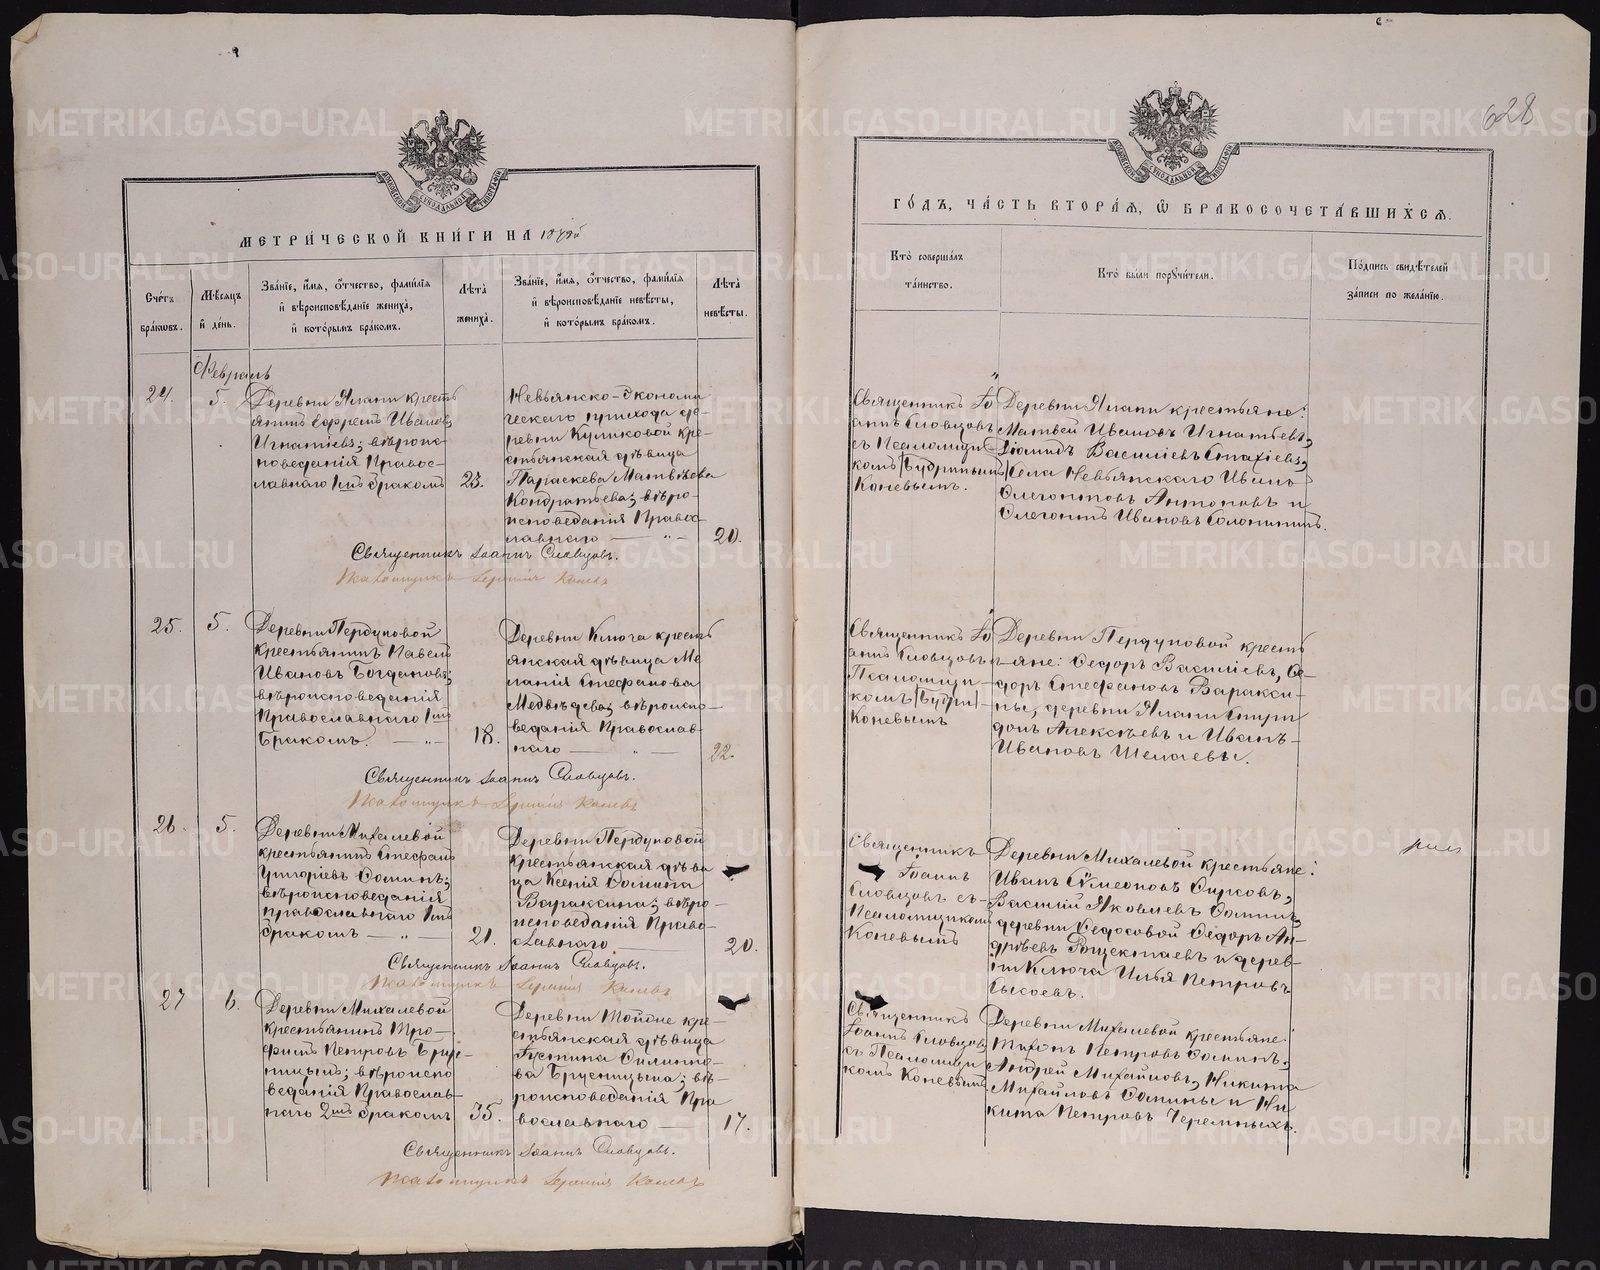 МЕТРИ́ЧЕСКОЙ КНИ́ГИ НА 18
Сче́тъ бра́кѡвъ.
Мѣ́сяцъ и҆ де́нь.
Зва́нїе, и҆́мя, ѻ҆́тчество, фами́лїя и҆ вѣроисповѣ́данїе жениха́, и҆ кото́рымъ бра́комъ.
Лѣ́та жениха́.
Зва́нїе, и҆́мя, ѻ҆́тчество, фами́лїя и҆ вѣроисповѣ́данїе невѣ́сты, и҆ кото́рымъ бра́комъ.
Лѣ́та невѣ́сты.
Февраль
24.
5.
Деревни Ялани кресть
янинъ Ефремъ Ивановъ
Игнатіевъ; вѣроис-
поведанія Правос-
лавнаго 1мъ бракомъ
23.
Невьянско-Экономи
ческаго прихода де-
ревни Куликовой кре-
стьянская дѣвица
Параскева Матвѣева
Кондратьева; вѣро-
исповеданія Правос-
лавнаго
20.
Священникъ Іоаннъ Словцовъ.
Псаломщикъ Коневъ
25.
5.
Деревни Пердуновой
крестьянинъ Павелъ
Ивановъ Богдановъ;
вѣроисповеданія
Православнаго 1мъ
Бракомъ.
18.
Деревни Ключа кресть
янская дѣвица Ме
ланія Стефанова
Медвѣдева; вѣроиспо-
веданія Православ-
наго
22.
Священникъ Іоаннъ Словцовъ.
Псаломщикъ Коневъ
26
5.
Деревни Михалевой
крестьянинъ Стефанъ
Григоріевъ Ѳоминъ;
вѣроисповеданія
православнаго 1мъ
бракомъ
21.
Деревни Пердуновой
крестьянская дѣви
ца Ксенія Ѳомина
Вараксина; вѣро-
исповеданія Право-
славнаго
20.
Священникъ Іоаннъ Словцовъ.
Псаломщикъ Коневъ
27
6.
Деревни Михалевой
крестьянинъ Тро-
фимъ Петровъ Брус-
ницынъ; вѣроиспо
веданія Православ-
наго 2мъ бракомъ
35.
Деревни Тойоне кре-
стьянская дѣвица
Іустина Филиппо-
ва Брусницына; вѣ-
роисповеданія Пра
вославнаго
17.
Священникъ Іоаннъ Словцовъ.
Псаломщикъ Коневъ
628
ГО́ДЪ, ЧА́СТЬ ВТОРА́Я, Ѽ БРАКОСОЧЕТА́ВШИХСЯ.
Кто̀ соверша́лъ та́инство.
Кто̀ бы́ли порꙋчи́тели.
По́дпись свидѣ́телей за́писи по жела́нїю.
Священникъ Іо
аннъ Словцовъ
съ Псаломщи-
комъ
Коневымъ.
Деревни Ялани крестьяне:
Матвей Ивановъ Игнатьевъ,
Діомидъ Василіевъ Стахіевъ,
Села Невьянскаго Иванъ
Олегонтовъ Антоновъ и
Олегонтъ Ивановъ Солонининъ.
Священникъ Іо
аннъ Словцовъ
Псаломщи-
комъ
Коневымъ
Деревни Пердуновой кресть
яне: Ѳедоръ Василіевъ, Ѳе-
доръ СтефановъВаракси-
ны, деревни Ялани Спири
донъ Алексѣевъ и Иванъ
Ивановъ Шелаевы.
Священникъ
Іоаннъ
Словцовъ съ
Псаломщикомъ
Коневымъ
Деревни Михалевой крестьяне:
Иванъ Сѵмеоновъ Фирсовъ,
Василій Яковлевъ Ѳоминъ,
деревни Ѳедосовой Ѳедоръ Ан-
дрѣевъ и дерев-
ни Ключа Илья Петровъ
Сысоевъ.
Священникъ
Іоаннъ Словцовъ
съ Псаломщи
комъ Коневымъ
Деревни Михалевой крестьяне
Тихонъ Петровъ Ѳоминъ,
Андрей Михайловъ, Никита
Михайловъ Ѳомины и Ни
кита Петровъ Черемныхъ.